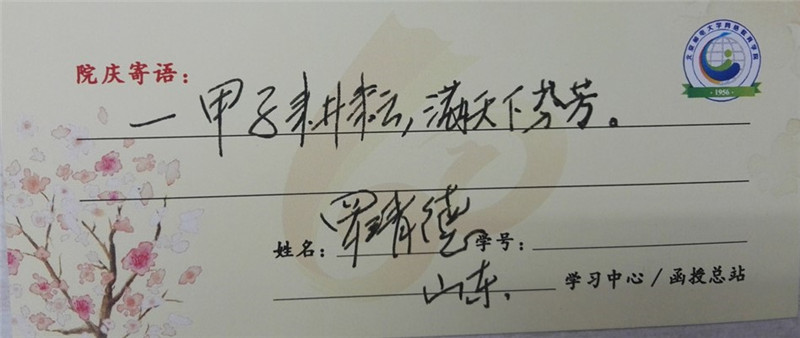 院庆寄语：
一甲子耕耘，满天下芬芳。
姓名：德 学号：
山东 学习中心／函授总站
北京邮电大学网络教育学院
·1956·